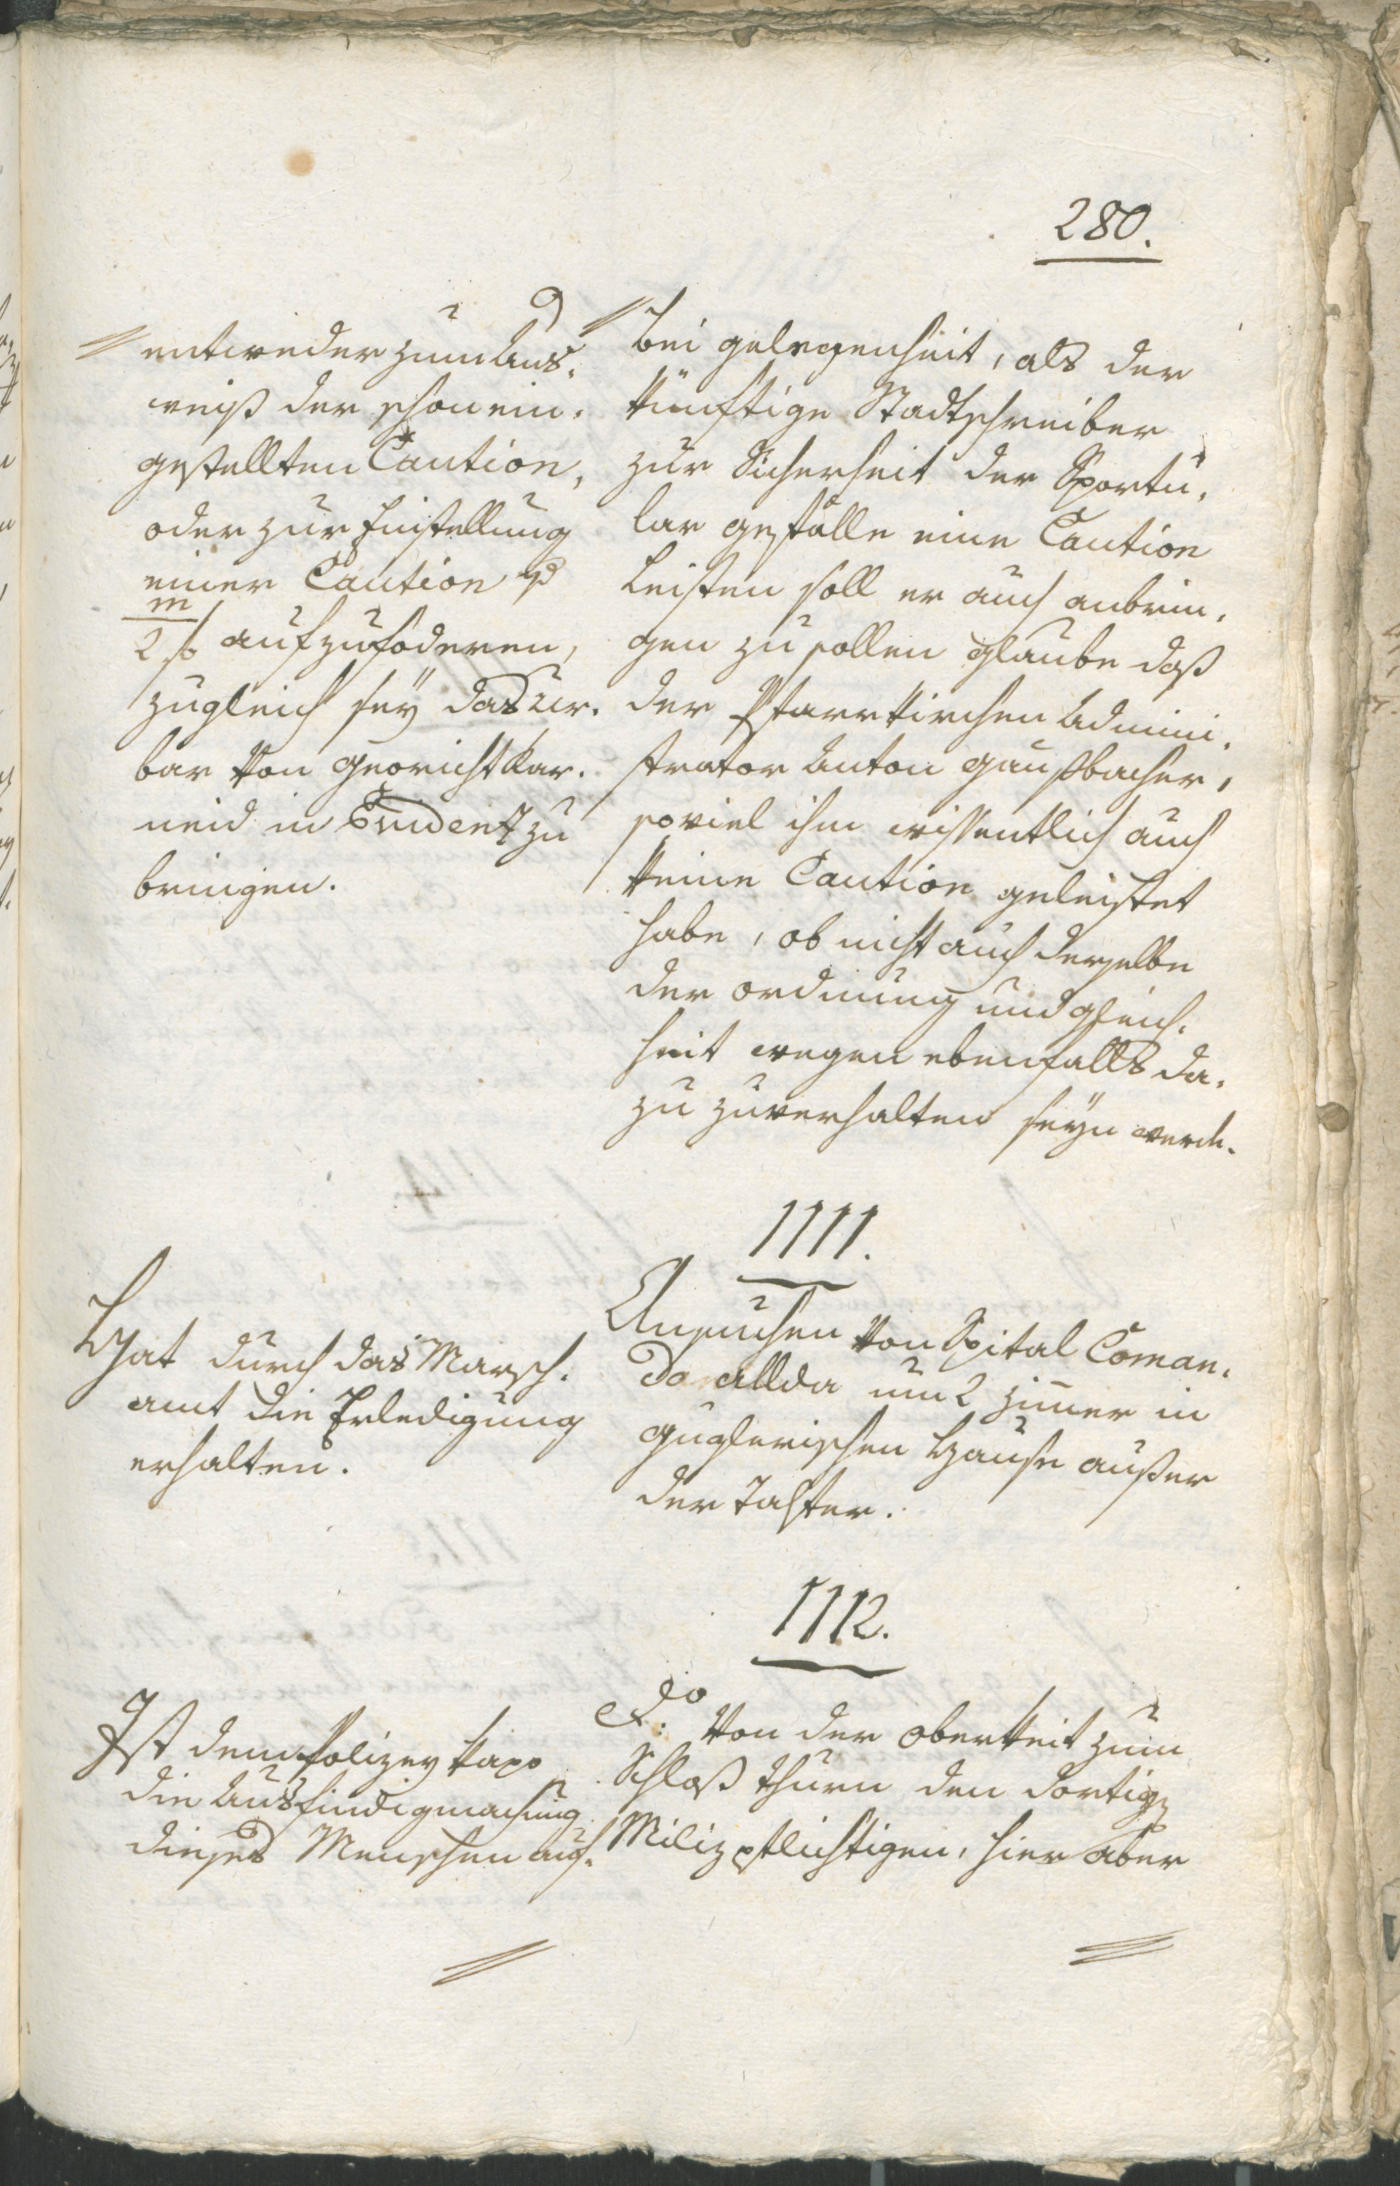 280.
entweder zum Aus-
weiß der schon ein-
gestellten Caution,
oder zur Einstellung
einer Caution p
m
2 f aufzufoderen,
zugleich sey das Ur-
bar von Gericht Kar-
neid in Evidenz zu
bringen.
bei gelegenheit, als der
künftige Stadtschreiber
zur Sicherheit der Sportu-
lar gefälle eine Caution
leisten soll er auch anbrin-
gen zu sollen glaube daß
der Pfarrkirchen Admini-
strator Anton Gaußbacher,
soviel ihm wissentlich auch
keine Caution geleistet
habe, ob nicht auch derselbe
der ordnung und gleich-
heit wegen ebenfalls da-
zu zuverhalten seyn werde.
1111.
Hat durch das Marsch-
amt die Erledigung
erhalten.
Ansuchen von Spital Coman-
do allda um 2 Zimer in
Guglerischen Hause außer
der Talfer.
1112.
Ist dem Polizey kapo
die Ausfindigmachung
dieses Menschen auf-
do. von der Oberkeit zum
Schloß Thurn den dortig
Miliz pflichtigen, hier aber